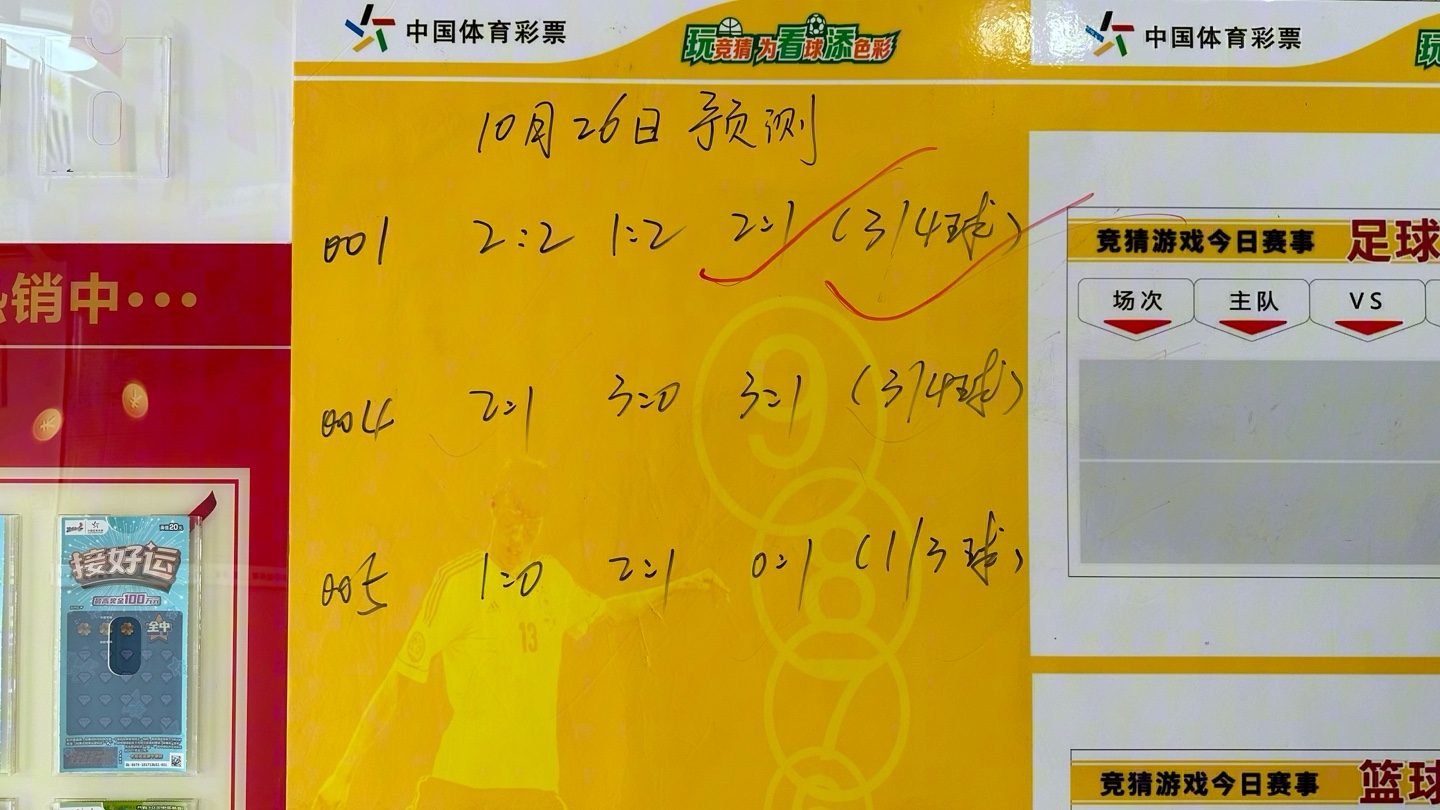 中国体育彩票
玩竞猜 为看球添色彩
中国体育彩票
玩
10月26日 预测
001 2:2 1:2 2:1 (3/4球)
004 2:1 3:0 3:1 (3/4球)
005 1:0 2:1 0:1 (1/3球)
销中···
竞猜游戏今日赛事 足球
场次 主队 VS
9
8
7
13
面值20元
接好运
最高奖金100万元
全中
竞猜游戏今日赛事 篮球